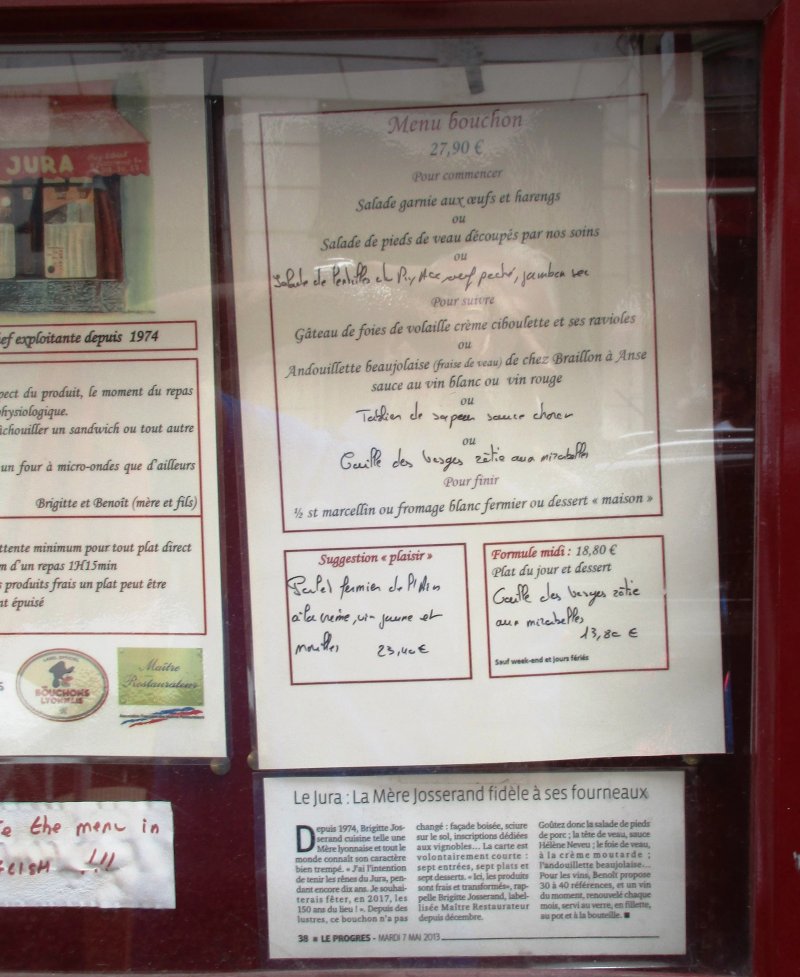 JURA
ef exploitante depuis 1974
pect du produit, le moment du repas
hysiologique.
chouiller un sandwich ou tout autre
un four à micro-ondes que d'ailleurs
Brigitte et Benoît (mère et fils)
ttente minimum pour tout plat direct
m d'un repas 1H15min
s produits frais un plat peut être
nt épuisé
BOUCHONS
LYONNAIS
Maître
Restaurateur
e the menu in
GLISH !!!
Menu bouchon
27,90 €
Pour commencer
Salade garnie aux œufs et harengs
ou
Salade de pieds de veau découpés par nos soins
ou
Salade de lentilles du Puy AOC, oeuf poché, jambon sec
Pour suivre
Gâteau de foies de volaille crème ciboulette et ses ravioles
ou
Andouillette beaujolaise (fraise de veau) de chez Braillon à Anse
sauce au vin blanc ou vin rouge
ou
Tablier de sapeur sauce choron
ou
Caille des Vosges rôtie aux mirabelles
Pour finir
½ st marcellin ou fromage blanc fermier ou dessert « maison »
Suggestion « plaisir »
Poulet fermier de l'Ain
à la crème, vin jaune et
morilles 23,40 €
Formule midi : 18,80 €
Plat du jour et dessert
Caille des Vosges rôtie
aux mirabelles
13,80 €
Sauf week-end et jours fériés
Le Jura : La Mère Josserand fidèle à ses fourneaux
Depuis 1974, Brigitte Jos-
serand cuisine telle une
Mère lyonnaise et tout le
monde connaît son caractère
bien trempé. « J'ai l'intention
de tenir les rênes du Jura, pen-
dant encore dix ans. Je souhai-
terais fêter, en 2017, les
150 ans du lieu ! ». Depuis des
lustres, ce bouchon n'a pas
changé : façade boisée, sciure
sur le sol, inscriptions dédiées
aux vignobles... La carte est
volontairement courte :
sept entrées, sept plats et
sept desserts. « Ici, les produits
sont frais et transformés», rap-
pelle Brigitte Josserand, label-
lisée Maître Restaurateur
depuis décembre.
Goûtez donc la salade de pieds
de porc ; la tête de veau, sauce
Hélène Neveu ; le foie de veau,
à la crème moutarde ;
l'andouillette beaujolaise...
Pour les vins, Benoît propose
30 à 40 références, et un vin
du moment, renouvelé chaque
mois, servi au verre, en fillette,
au pot et à la bouteille. ■
38 ■ LE PROGRES - MARDI 7 MAI 2013